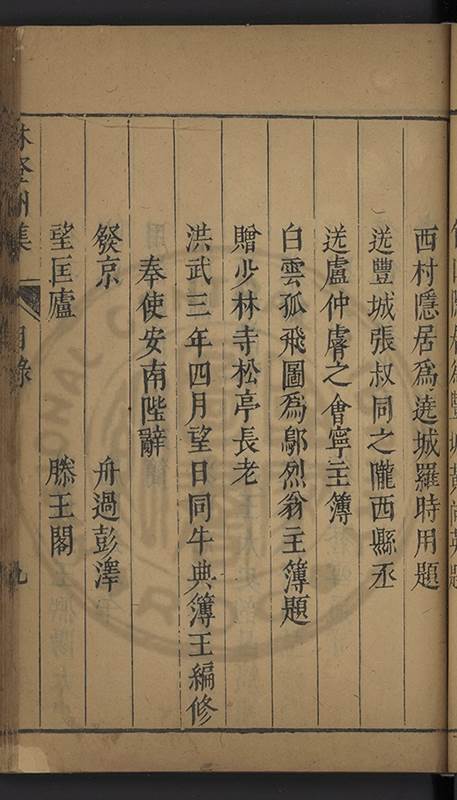 西村隱居爲遶城羅時用題
送豐城張叔同之隴西縣丞
送盧仲膚之會寧主簿
白雲孤飛圖爲鄔烈翁主簿題
贈少林寺松亭長老
洪武三年四月望日同牛典簿王編修
奉使安南陛辭
發京 舟過彭澤
望匡廬 滕王閣
林登州集 目錄 九